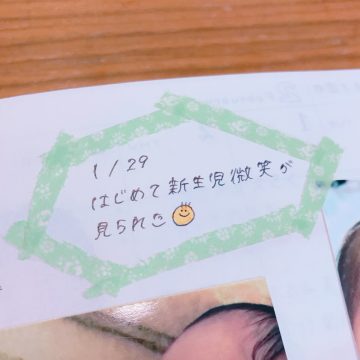 1/29
はじめて新生児微笑が
見られた